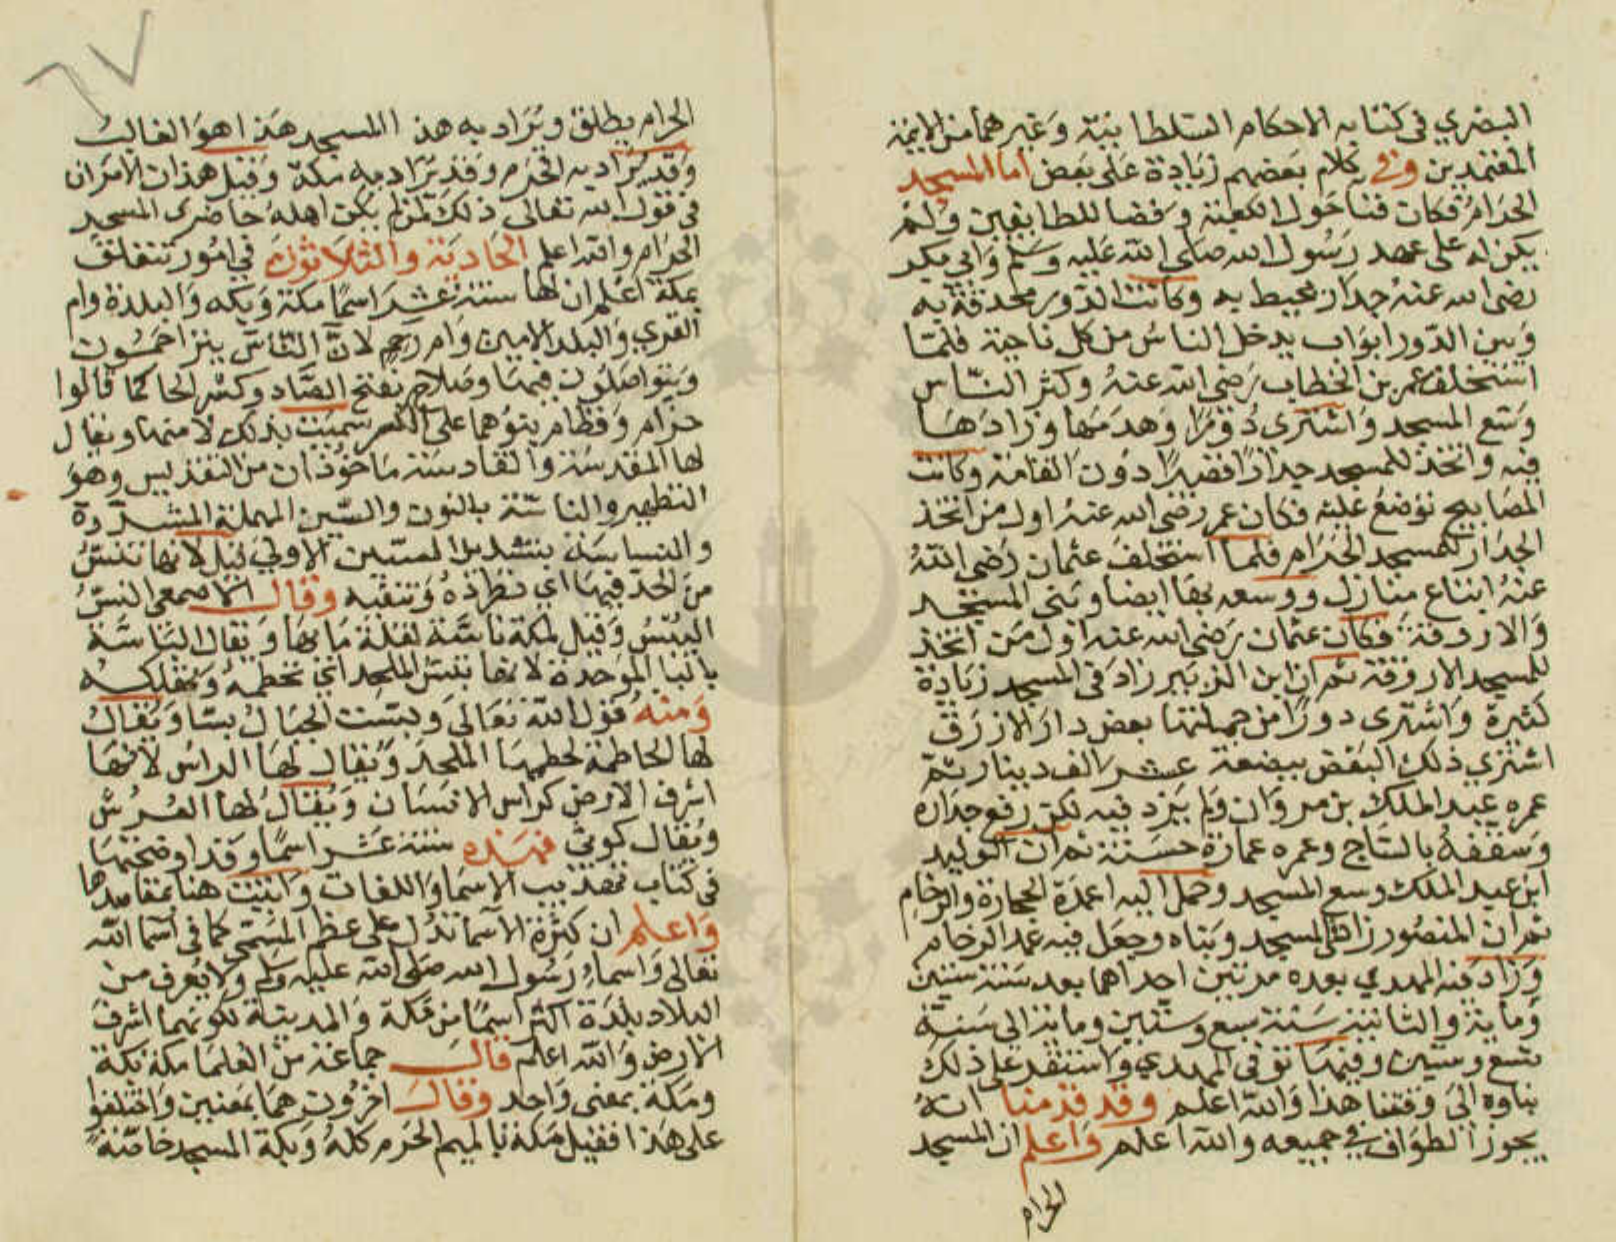 البصري في كتابه الاحكام السلطانية وغيرهما من الايمة
المعتمدين وفي كلام بعضهم زيادة على بعض اما المسجد
الحرام فكان فنا حول الكعبة وفضا للطايفين ولم
يكن له على عهد رسول الله صلى الله عليه وسلم وابي بكر
رضى الله عنه جدار يحيط به وكانت الدور محدقة به
وبين الدور ابواب يدخل الناس من كل ناحية فلما
استخلف عمر بن الخطاب رضى الله عنه وكثر الناس
وسع المسجد واشترى دورا وهدمها وزادها
فيه واتخذ للمسجد جدارا قصيرا دون القامة وكانت
المصابيح توضع عليه فكان عمر رضى الله عنه اول من اتخذ
الجدار للمسجد الحرام فلما استخلف عثمان رضى الله
عنه ابتاع منازل ووسعه بها ايضا وبنى المسجد
والاروقة فكان عثمان رضى الله عنه اول من اتخذ
للمسجد الاروقة ثم ان ابن الزبير زاد فى المسجد زيادة
كثيرة واشترى دورا من جملتها بعض دار الازرق
اشترى ذلك البعض ببضعة عشر الف دينار ثم
عمره عبد الملك بن مروان ولم يزد فيه لكن رفع جداره
وسقفه بالساج وعمره عمارة حسنة ثم ان الوليد
ابن عبد الملك وسع المسجد وحمل اليه اعمدة الحجارة والرخام
ثم ان المنصور زاد فى المسجد وبناه وجعل فيه عمد الرخام
وزاد فيه المهدي بعده مرتين احداهما بعد سنة ستين
وماية والثانية سنة سبع وستين وماية الى سنة
تسع وستين وفيها توفى المهدي واستقر على ذلك
بناوه الى وقتنا هذا والله اعلم وقد قدمنا انه
يجوز الطواف في جميعه والله اعلم واعلم ان المسجد
الحرام
الحرام يطلق ويراد به هذ المسجد هذا هو الغالب
وقد يراد به الحرم وقد يراد به مكة وقيل هذان الامران
فى قول الله تعالى ذلك لمن لم يكن اهله حاضرى المسجد
الحرام والله اعلم الحادية والثلاثون في امور تتعلق
بمكة اعلم ان لها ستة عشر اسما مكة وبكه والبلدة وام
القري والبلد الامين وام رحم لان الناس يتراحمون
ويتواصلون فيها وصلاح بفتح الصاد وكسر الحا كما قالوا
حزام وقطام بنوهما على الكسر سميت بذلك لامنها ويقال
لها المقدسة والقادسة ماخوذان من التقديس وهو
التطهير والناسة بالنون والسين المهملة المشددة
والنساسة بتشديد السين الاولي قيل لانها تنس
من الحد فيها اي تطرده وتنفيه وقال الاصمعى النس
اليبس وقيل لمكة ناسة لقلة مايها ويقال الباسة
بالبا الموحدة لانها تبس الملحد اي تحطمه وتهلكه
ومنه قول الله تعالى وبست الجبال بسا ويقال
لها الحاطمة لحطمها الملحد ويقال لها الراس لانها
اشرف الارض كراس الانسان ويقال لها العرش
ويقال كوثى فهذه ستة عشر اسما وقد اوضحتها
فى كتاب تهذيب الاسما واللغات واتيت هنا بمقاصدها
واعلم ان كثرة الاسما تدل على عظم المسمى كما فى اسما الله
تعالى واسماء رسول الله صلى الله عليه وسلم ولا يعرف من
البلاد بلدة اكثر اسما من مكة والمدينة لكونهما اشرف
الارض والله اعلم قال جماعة من العلما مكة بكة
ومكة بمعنى واحد وقال اخرون هما بمعنيين واختلفوا
على هذا فقيل مكة بالميم الحرم كله وبكة المسجد خاصة